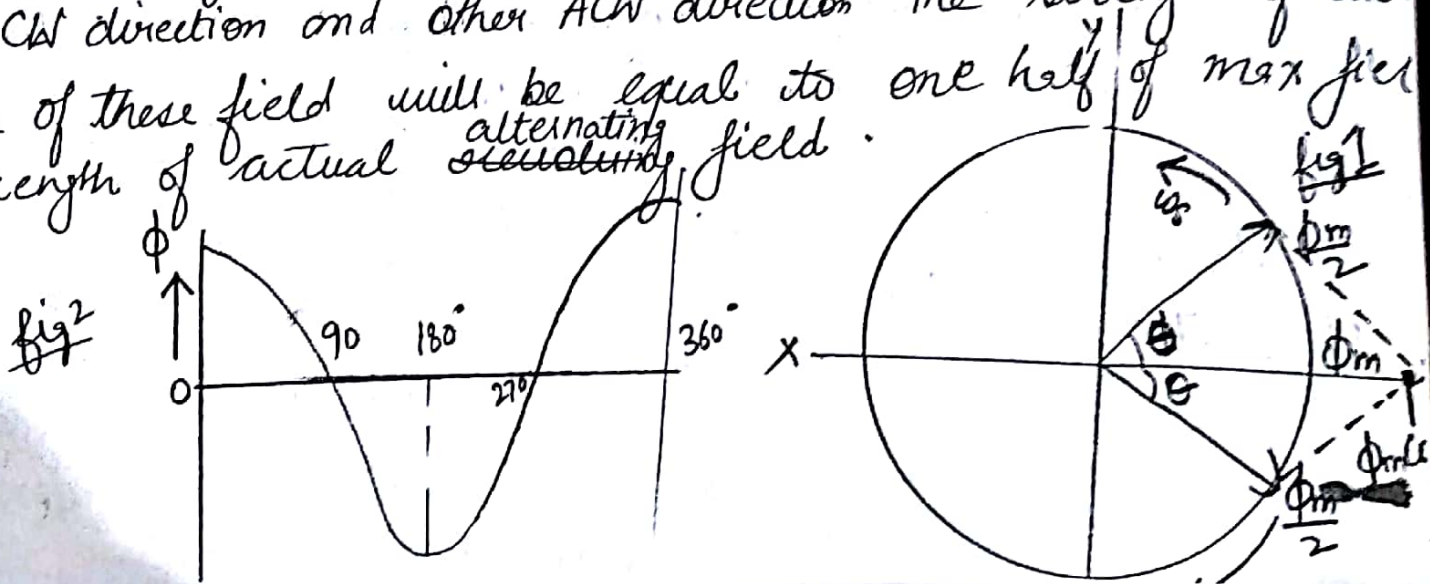 CW direction and other ACW direction The
of these field will be equal to one half of max
alternating
of actual field.
Y
fig 1
ϕ
fig 2
0
90
180°
270
360°
X
ϕm
2
θ
θ
ϕm
ϕm
2